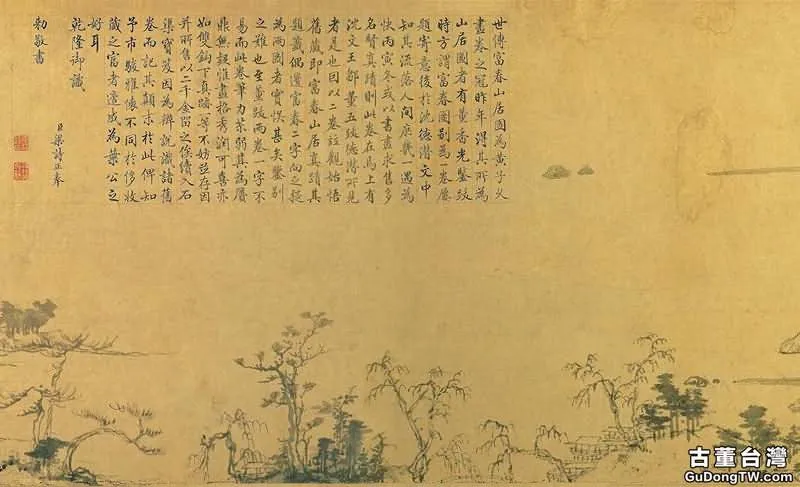 世傳富春山居圖為黃子久
畫卷之冠昨年得其所為
山居圖者有董香光鑒跋
時方謂富春圖別為一卷屢
題寄意後於沈德潛文中
知其流落人間庶幾一遇為
快丙寅冬或以書畫求售多
名賢真蹟則此卷在焉上有
沈文王鄒董五跋德潛所見
者是也因以二卷並觀始悟
舊藏即富春山居真蹟其
題籤偶遺富春二字向之疑
為兩圖者實悞甚矣鑒別
之難也至董跋兩卷一字不
易而此卷筆力苶弱其為贗
鼎無疑惟畫格秀潤可喜亦
如雙鉤下真蹟一等不妨並存因
并所售以二千金留之俟續入石
渠寶笈因為辨說識諸舊
卷而記其顛末於此俾知
予市駿雅懷不同於侈收
藏之富者適成為葉公之
好耳
乾隆御識
臣梁詩正奉
勅敬書
古董台灣
GuDongTW.com